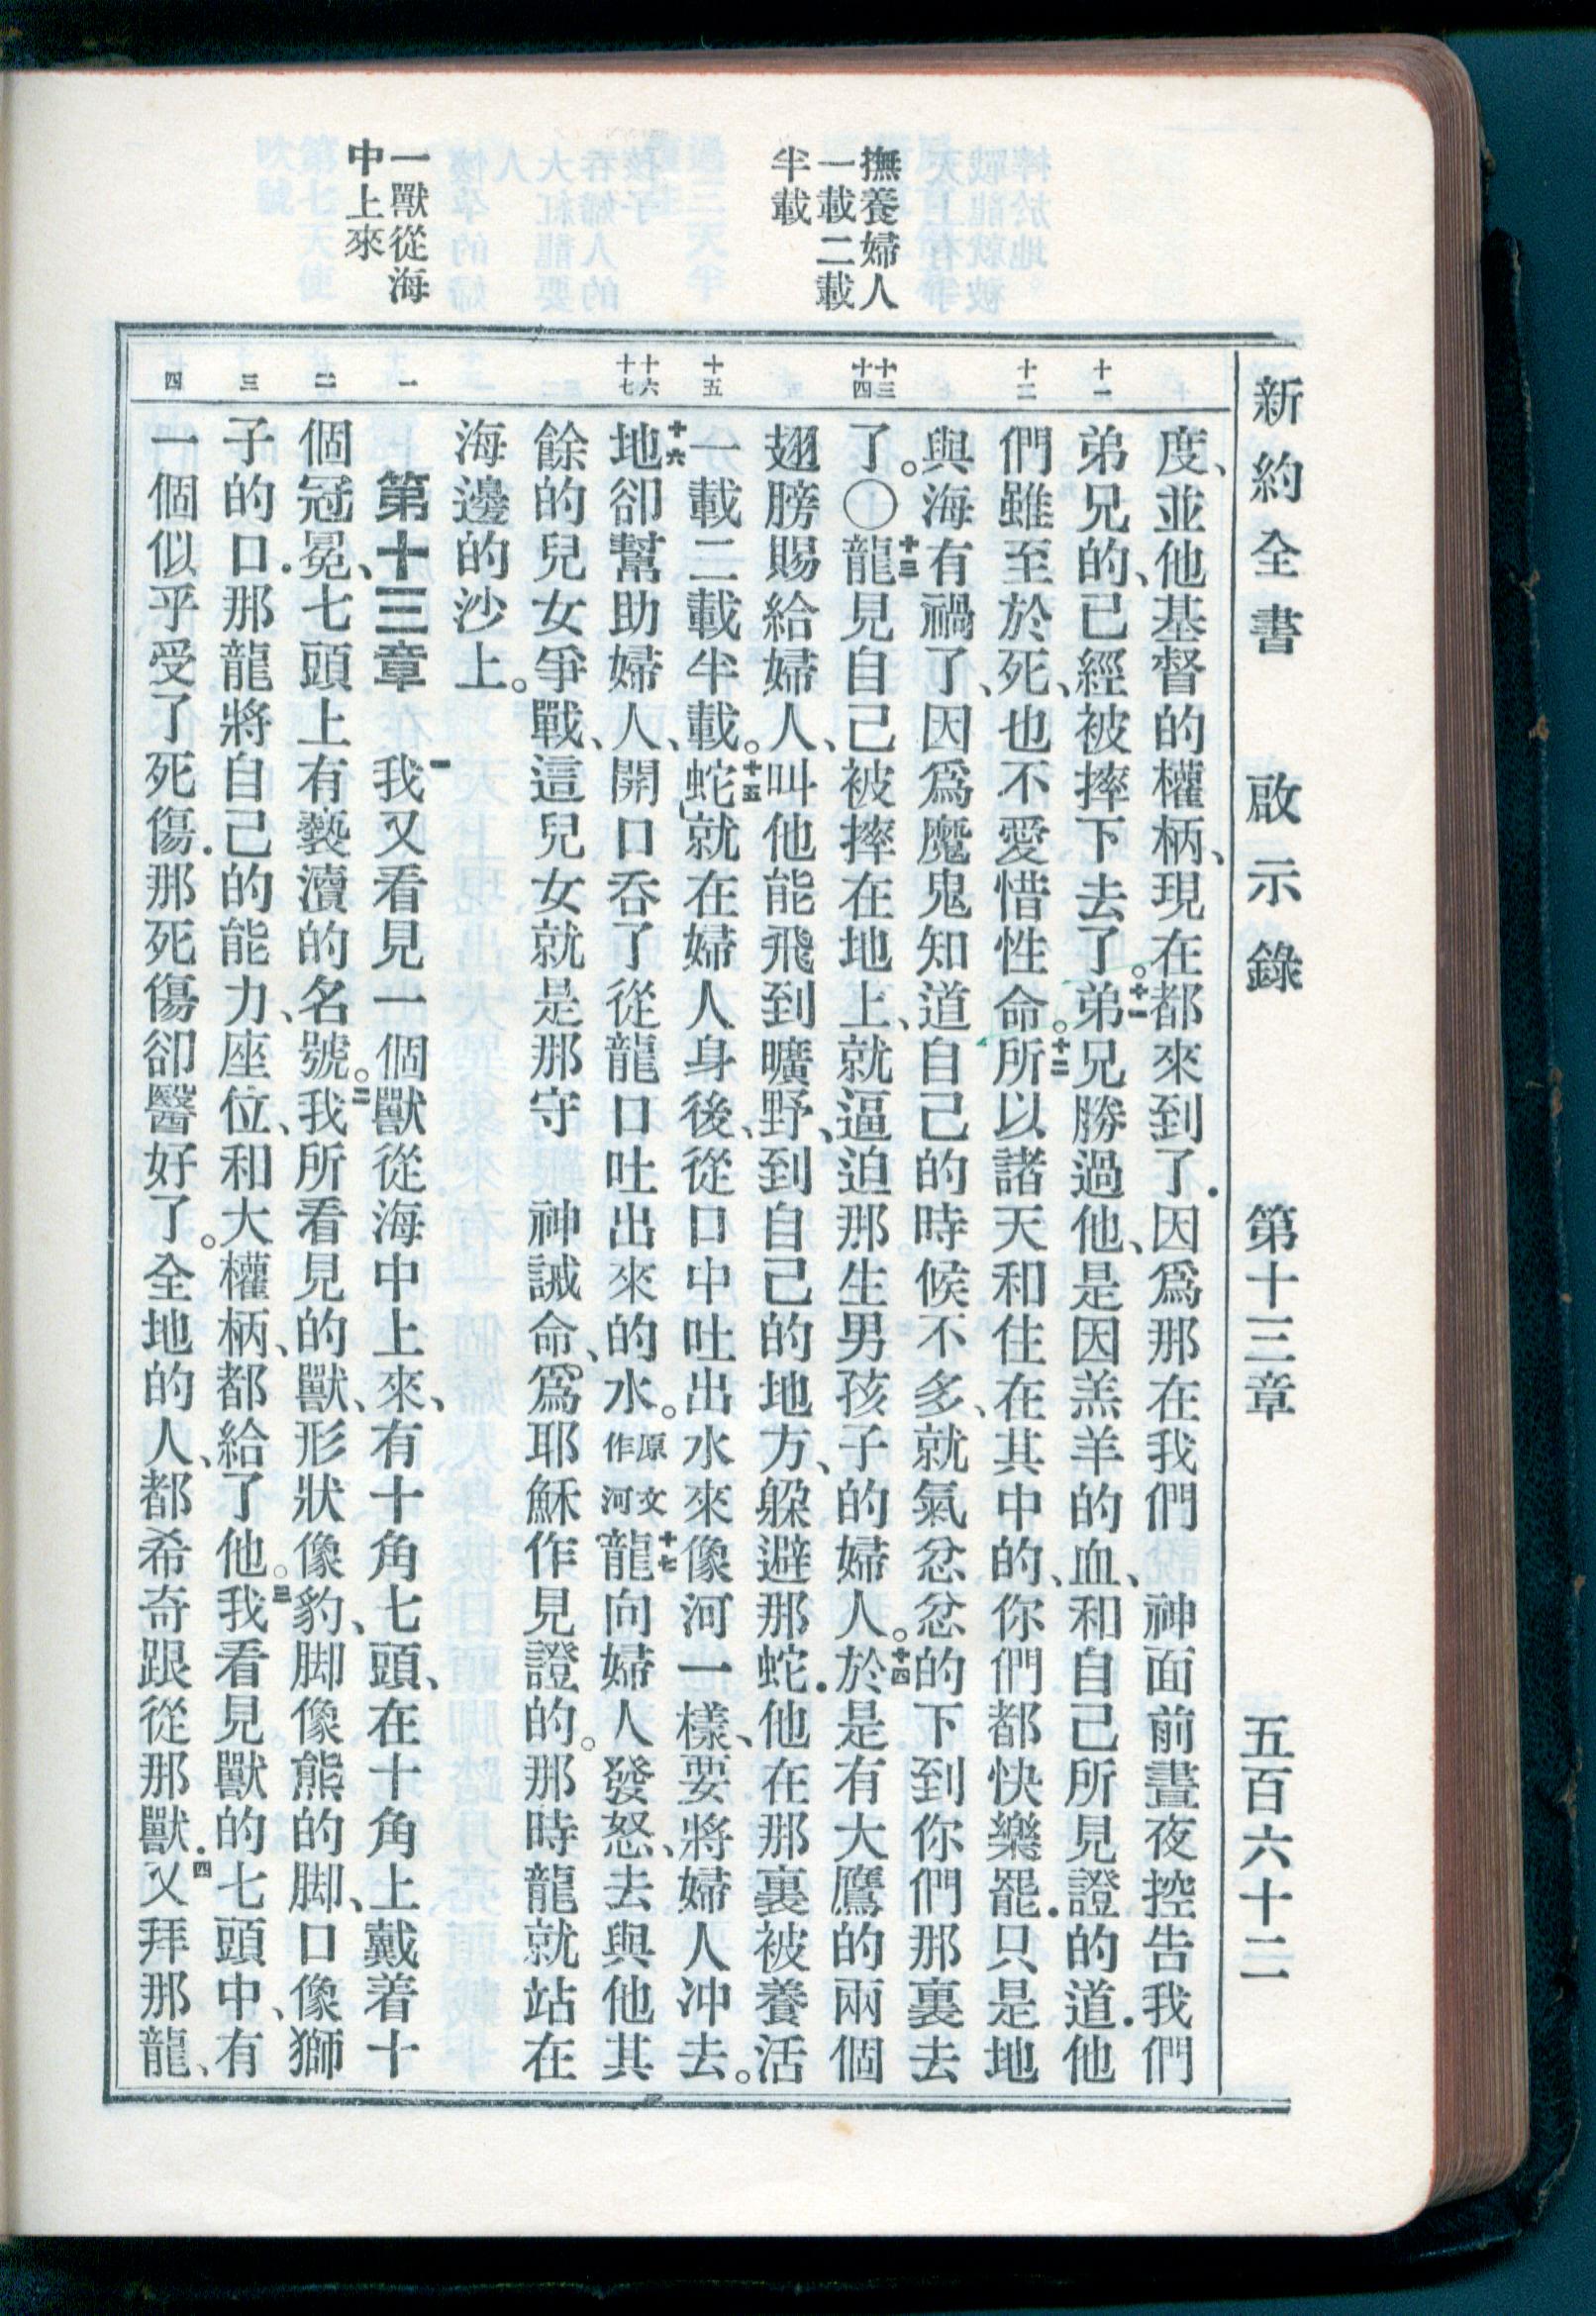 新約全書 啟示錄 第十三章 五百六十二
撫養婦人
一載二載
半載
一獸從海
中上來
十一
十二
十三
十四
十五
十六
十七
一
二
三
四
度、並他基督的權柄、現在都來到了．因爲那在我們 神面前晝夜控告我們
弟兄的、已經被摔下去了。十一弟兄勝過他、是因羔羊的血、和自己所見證的道．他
們雖至於死、也不愛惜性命。十二所以諸天和住在其中的、你們都快樂罷．只是地
與海有禍了、因爲魔鬼知道自己的時候不多、就氣忿忿的下到你們那裏去
了。〇十三龍見自己被摔在地上、就逼迫那生男孩子的婦人。十四於是有大鷹的兩個
翅膀賜給婦人、叫他能飛到曠野、到自己的地方、躲避那蛇．他在那裏被養活
一載二載半載。十五蛇就在婦人身後、從口中吐出水來像河一樣、要將婦人冲去。
十六地卻幫助婦人、開口吞了從龍口吐出來的水。原文作河十七龍向婦人發怒、去與他其
餘的兒女爭戰、這兒女就是那守 神誡命、爲耶穌作見證的。那時龍就站在
海邊的沙上。
第十三章 一我又看見一個獸從海中上來、有十角七頭、在十角上戴着十
個冠冕、七頭上有褻瀆的名號。二我所看見的獸、形狀像豹、脚像熊的脚、口像獅
子的口．那龍將自己的能力、座位、和大權柄、都給了他。三我看見獸的七頭中、有
一個似乎受了死傷．那死傷卻醫好了。全地的人、都希奇跟從那獸．四又拜那龍、